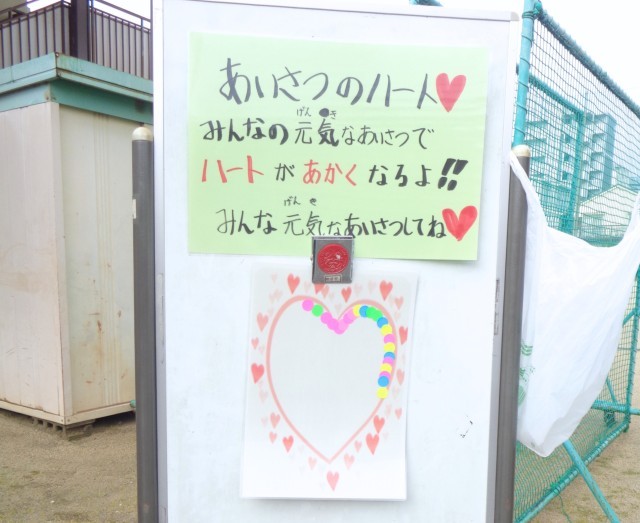 あいさつのハート♥
みんなの元気なあいさつで
げん き
ハートがあかくなるよ!!
みんな元気なあいさつしてね♥
げん き